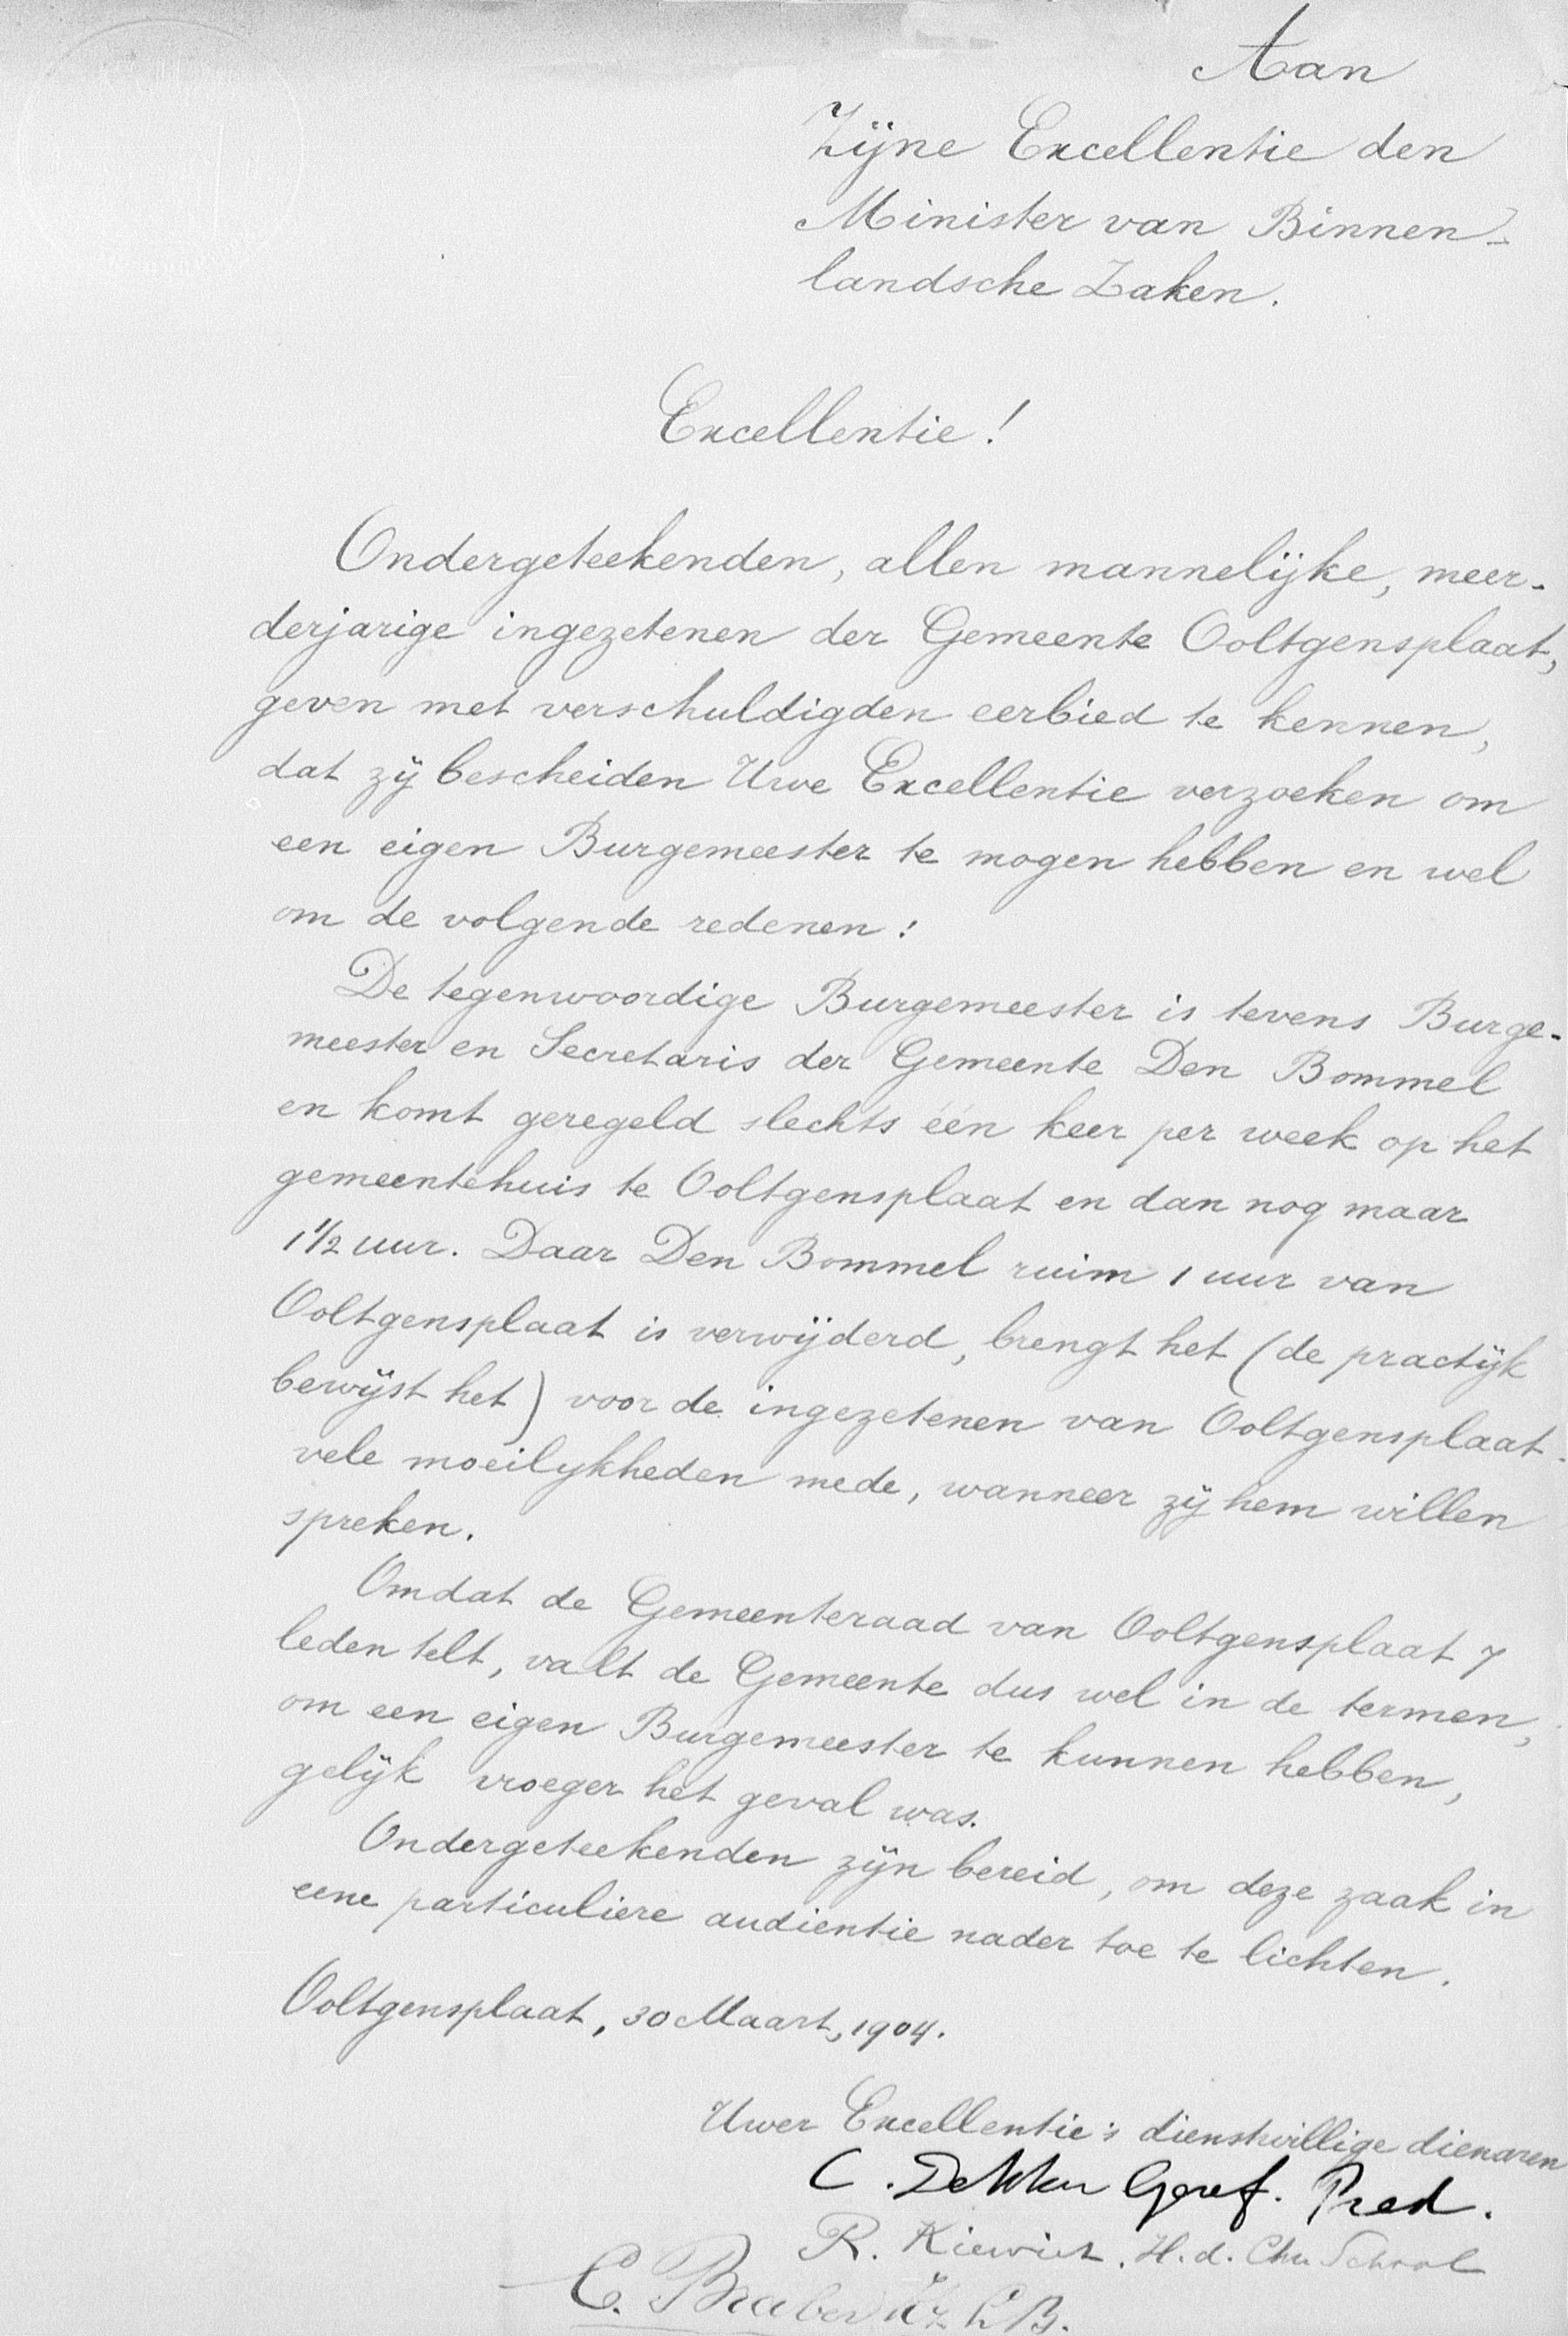 Aan
Zijne Excellentie den
Minister van Binnen-
landsche Zaken.
Excellentie!
Ondergeteekenden, allen mannelijke, meer-
derjarige ingezetenen der Gemeente Ooltgensplaat,
geven met verschuldigden eerbied te kennen,
dat zij bescheiden Uwe Excellentie verzoeken om
een eigen Burgemeester te mogen hebben en wel
om de volgende redenen:
De tegenwoordige Burgemeester is tevens Burge-
meester en Secretaris der Gemeente Den Bommel
en komt geregeld slechts één keer per week op het
gemeentehuis te Ooltgensplaat en dan nog maar
1 1/2 uur. Daar Den Bommel ruim 1 uur van
Ooltgensplaat is verwijderd, brengt het (de practijk
bewijst het) voor de ingezetenen van Ooltgensplaat
vele moeilykheden mede, wanneer zij hem willen
spreken.
Omdat de Gemeenteraad van Ooltgensplaat 7
leden telt, valt de Gemeente dus wel in de termen,
om een eigen Burgemeester te kunnen hebben,
gelijk vroeger het geval was.
Ondergeteekenden zijn bereid, om deze zaak in
eene particuliere audientie nader toe te lichten.
Ooltgensplaat, 30 Maart, 1904.
Uwer Excellentie's dienstwillige dienaren
C. Dekker Geref. Pred.
R. Kiewiet. H. d. Chr. School
C.